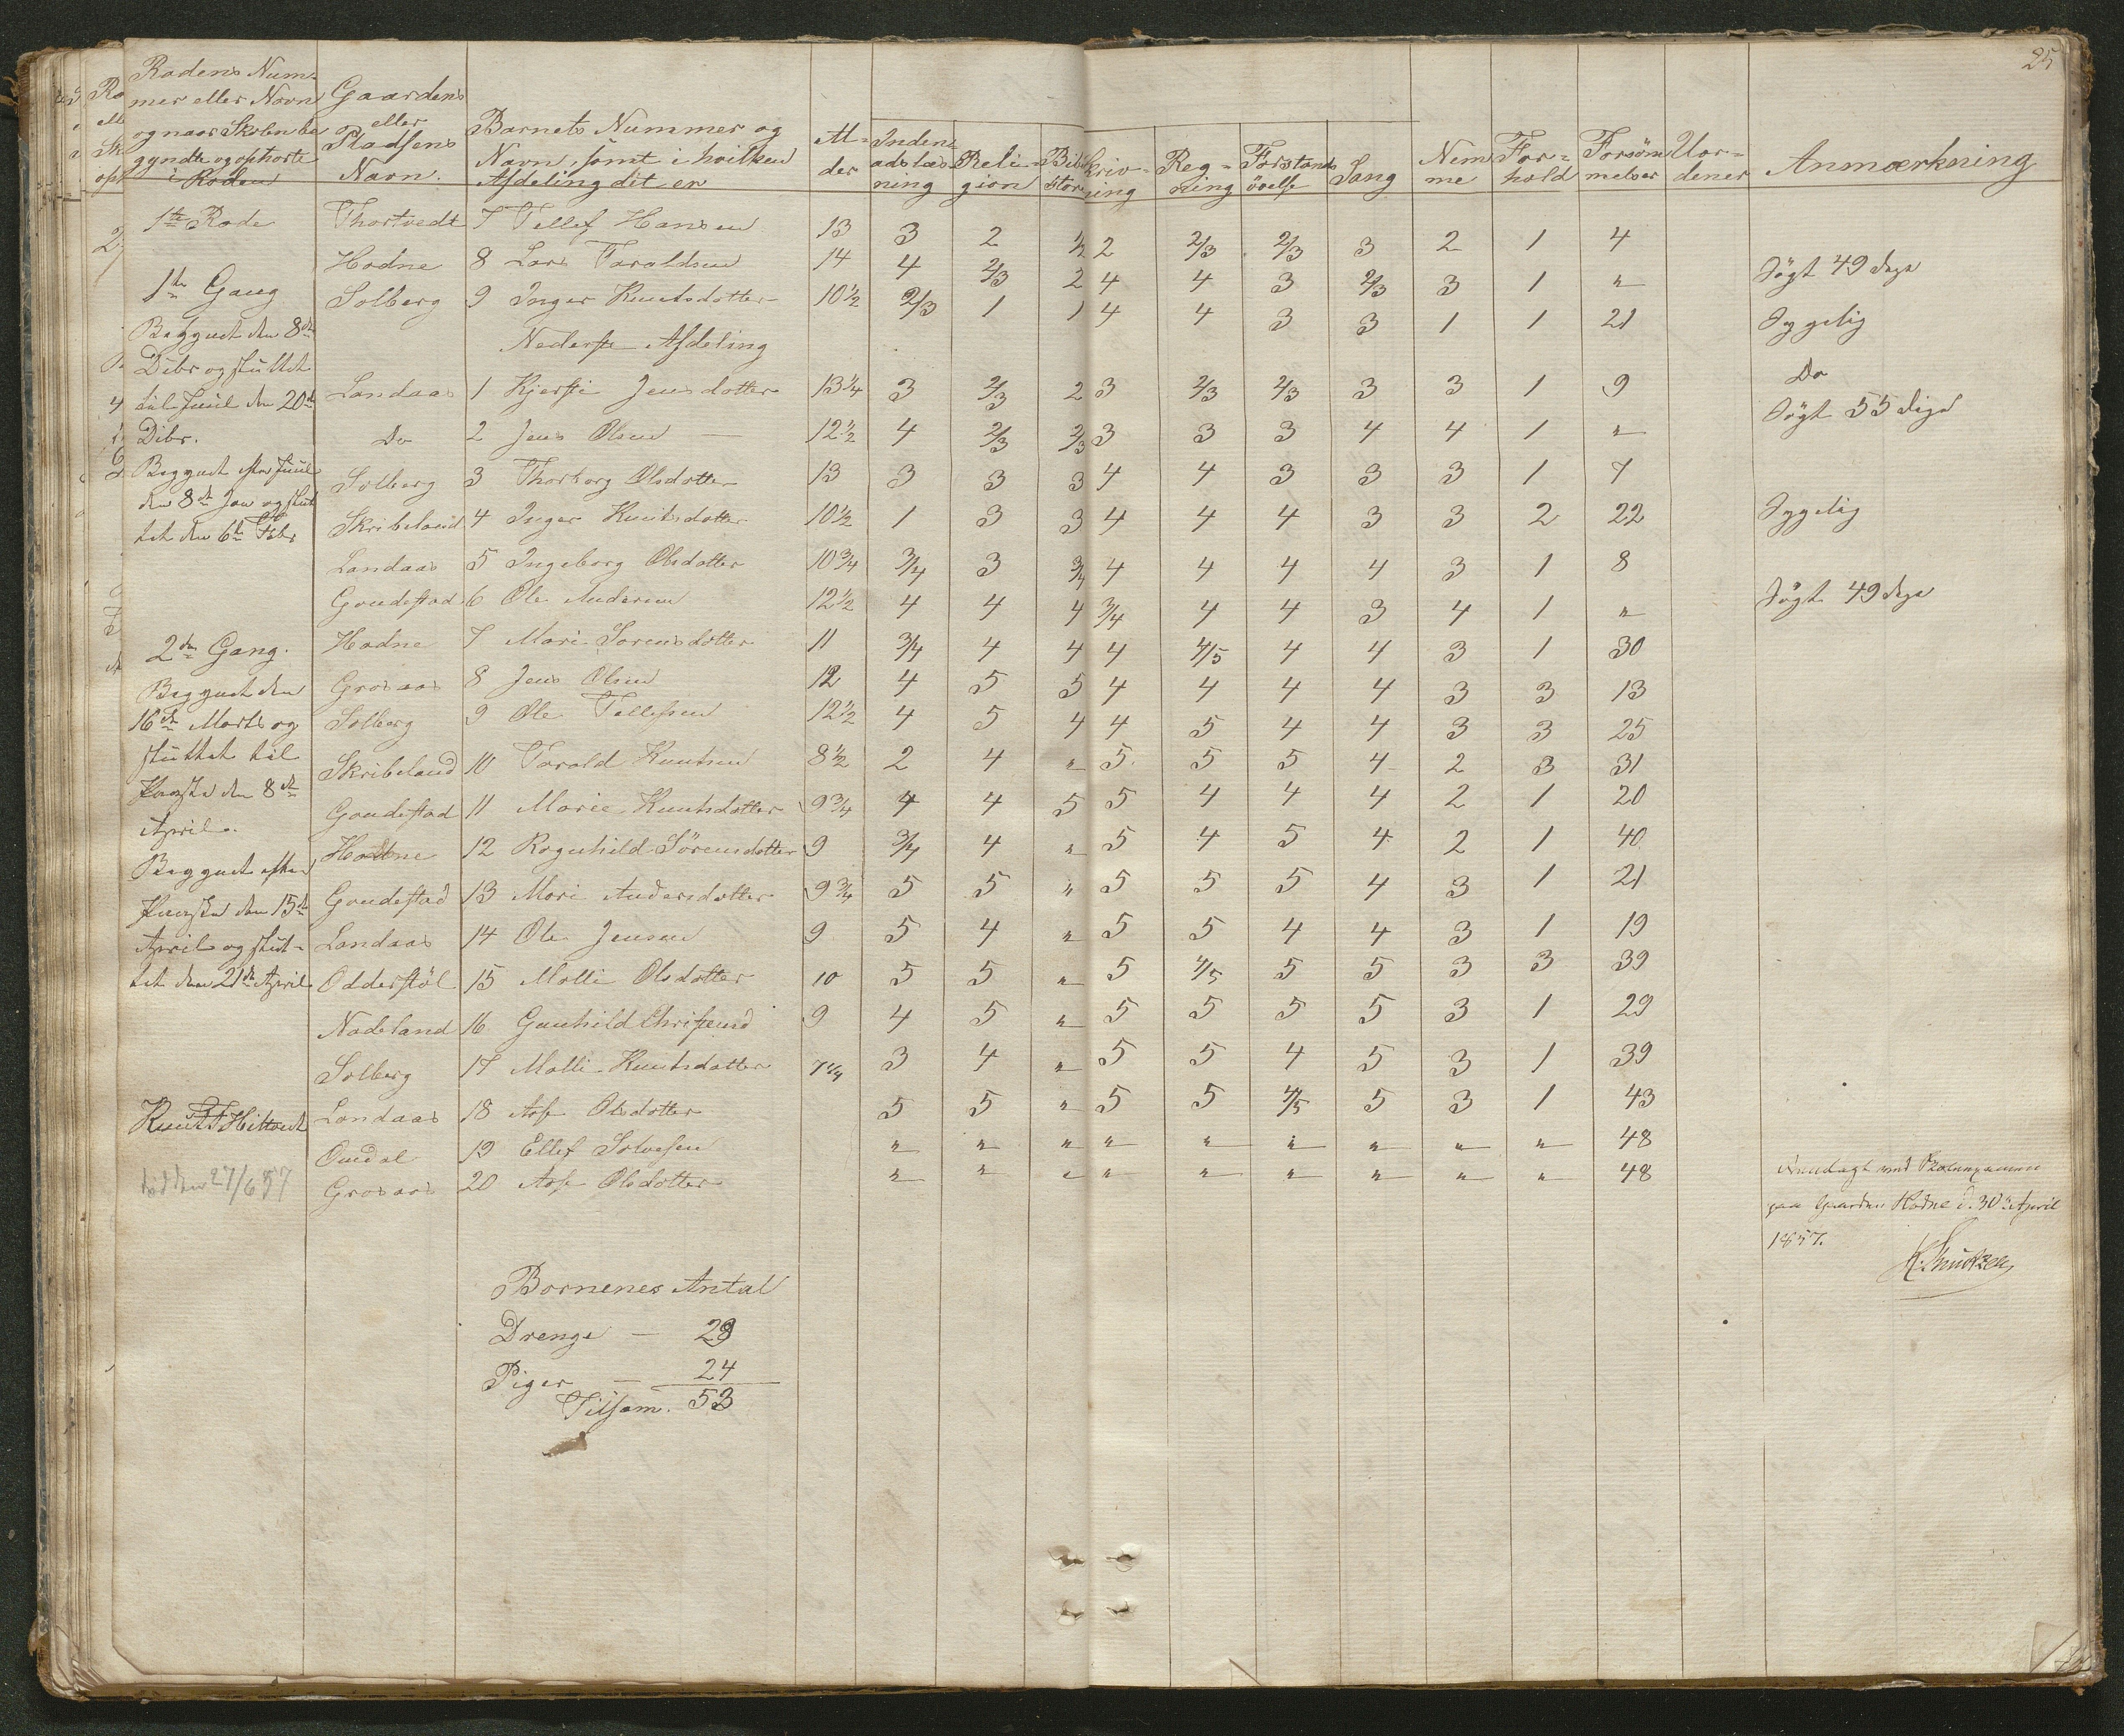 25
Rodens Num-
mer eller Navn
og naar Skolen be
gyndte og ophørte
i Roden
Gaardens
eller
Pladsens
Navn.
Barnets Nummer og
Navn, samt i hvilken
Afdeling dit er
Al-
der
Inden-
adslæs
ning
Reli-
gion
Bib
stor
kriv-
ning
Reg-
ning
Forstands
øvelse
Sang
Nem
me
For-
hold
Forsøm
melser
Uor-
dener
Anmærkning
1te Rode
1te Gang
Begyndt den 8de
Dcbr og sluttet
til Juul den 20de
Dcbr.
Begyndt efter Juul
den 8de Jan og slut
tet den 6te Febr
2den Gang.
Begyndt den
16de Marts og
sluttet til
Paaske den 8de
April.
Begyndt efter
Paaske den 15de
April og slut-
tet den 21de April
død den 27/6 57
Thortvedt 7 Tellef Hansen 13 3 2 1/2 2 2/3 2/3 3 2 1 4
Hodne 8 Lars Taraldsen 14 4 2/3 2 4 4 3 2/3 3 1 " Søgt 49 dage
Solberg 9 Inger Knutsdotter 10 1/2 2/3 1 1 4 4 3 3 1 1 21 Sygelig
Nederste Afdeling
Landaas 1 Kjersti Jensdotter 13 1/4 3 2/3 2 3 2/3 2/3 3 3 1 9 Do
Do 2 Jens Olsen — 12 1/2 4 2/3 2/3 3 3 3 4 4 1 " Søgt 55 dage
Solberg 3 Thorborg Olsdotter 13 3 3 3 4 4 3 3 3 1 7
Skribeland 4 Inger Knutsdotter 10 1/2 1 3 3 4 4 4 3 3 2 22 Sygelig
Landaas 5 Ingeborg Olsdotter 10 3/4 3/4 3 3/4 4 4 4 4 3 1 8
Gondestad 6 Ole Andersen 12 1/2 4 4 4 3/4 4 4 3 4 1 " Søgt 49 dage
Hodne 7 Mari Sørensdotter 11 3/4 4 4 4 4/5 4 4 3 1 30
Grosaas 8 Jens Olsen 12 4 5 5 4 4 4 4 3 3 13
Solberg 9 Ole Tellefsen 12 1/2 4 5 4 4 5 4 4 3 3 25
Skribeland 10 Tarald Knutsen 8 1/2 2 4 " 5 5 5 4 2 3 31
Gondestad 11 Marie Knutsdotter 9 3/4 4 4 5 5 4 4 4 2 1 20
Hodne 12 Rognhild Sörensdotter 9 3/4 4 " 5 4 5 4 2 1 40
Gondestad 13 Mari Andersdotter 9 3/4 5 5 " 5 5 5 4 3 1 21
Landaas 14 Ole Jensen 9 5 4 " 5 5 4 4 3 1 19
Odderstøl 15 Malli Olsdotter 10 5 5 " 5 4/5 5 5 3 3 39
Nadeland 16 Gunhild 9 4 5 " 5 5 5 5 3 1 29
Solberg 17 Malli Knutsdotter 7 1/4 3 4 " 5 5 4 5 3 1 39
Landaas 18 Aase Olsdotter 5 5 " 5 5 4/5 5 3 1 43
Omdal 19 Ellef Solvesen " " " " " " " " " 48
Grosaas 20 Aase Olsdotter " " " " " " " " " 48
ved
paa Gaarden Hodne d. 30te April
1857.
K. Knutzen
Børnenes Antal
Drenge — 29
Piger — 24
Tilsam. 53